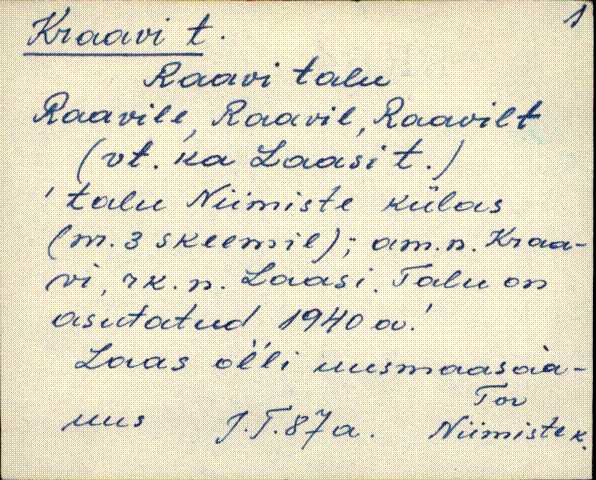 1
Kraavi t.
Raavi talu
Raavile, Raavil, Raavilt
(vt. ka Laasi t.)
' talu Niimiste külas
(m. 3 skeemil); am. n. Kraa-
vi, rk. n. Laasi. Talu on
asutatud 1940 a.'
Laas olli uusmaasaa-
uus J.T.87a.
Tor
Niimiste k.